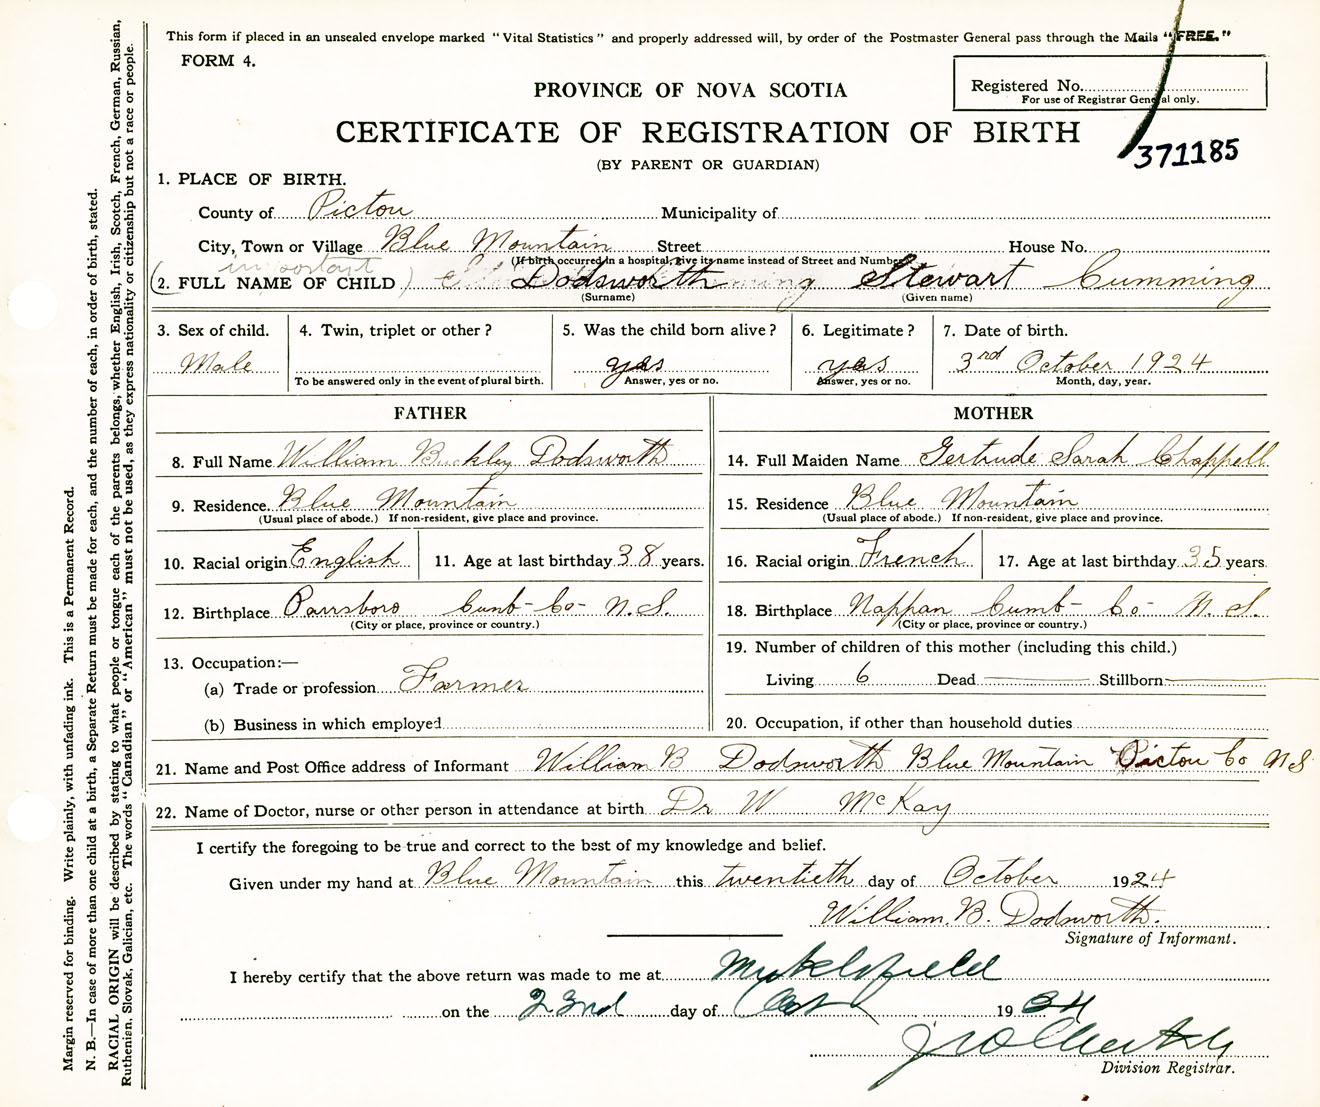 This form if placed in an unsealed envelope marked "Vital Statistics" and properly addressed will, by order of the Postmaster General pass through the Mails "FREE."
FORM 4.
Registered No.
For use of Registrar General only.
PROVINCE OF NOVA SCOTIA
CERTIFICATE OF REGISTRATION OF BIRTH
371185
(BY PARENT OR GUARDIAN)
1. PLACE OF BIRTH.
County of Pictou Municipality of
City, Town or Village Blue Mountain Street House No.
(If birth occurred in a hospital, give its name instead of Street and Number)
important
(2. FULL NAME OF CHILD) Dodsworth Stewart Cumming
(Surname) (Given name)
3. Sex of child. 4. Twin, triplet or other? 5. Was the child born alive? 6. Legitimate? 7. Date of birth.
Male yes yes 3rd October 1924
To be answered only in the event of plural birth. Answer, yes or no. Answer, yes or no. Month, day, year.
FATHER
8. Full Name William Buckley Dodsworth
9. Residence Blue Mountain
(Usual place of abode.) If non-resident, give place and province.
10. Racial origin English 11. Age at last birthday 38 years.
12. Birthplace Parrsboro Cumb- Co- N.S.
(City or place, province or country.)
13. Occupation:—
(a) Trade or profession Farmer
(b) Business in which employed
MOTHER
14. Full Maiden Name Gertrude Sarah Chappell
15. Residence Blue Mountain
(Usual place of abode.) If non-resident, give place and province.
16. Racial origin French 17. Age at last birthday 35 years
18. Birthplace Nappan Cumb- Co- N.S.
(City or place, province or country.)
19. Number of children of this mother (including this child.)
Living 6 Dead Stillborn
20. Occupation, if other than household duties
21. Name and Post Office address of Informant William B Dodsworth Blue Mountain Pictou Co N S
22. Name of Doctor, nurse or other person in attendance at birth Dr W McKay
I certify the foregoing to be true and correct to the best of my knowledge and belief.
Given under my hand at Blue Mountain this twentieth day of October 1924
William. B. Dodsworth.
Signature of Informant.
I hereby certify that the above return was made to me at
on the 22nd day of Oct 19
Division Registrar.
Margin reserved for binding. Write plainly, with unfading ink. This is a Permanent Record.
N. B.—In case of more than one child at a birth, a Separate Return must be made for each, and the number of each, in order of birth, stated.
RACIAL ORIGIN will be described by stating to what people or tongue each of the parents belongs, whether English, Irish, Scotch, French, German, Russian,
Ruthenian, Slovak, Galician, etc. The words "Canadian" or "American" must not be used, as they express nationality or citizenship but not a race or people.